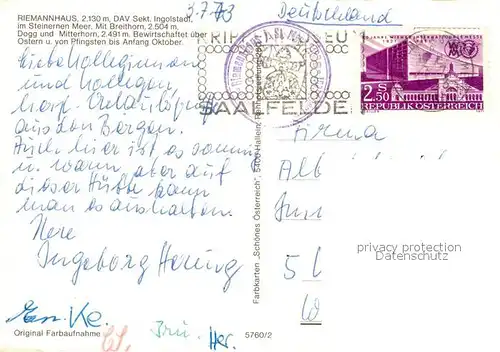 3.7.73
Deutschland
RIEMANNHAUS, 2.130 m, DAV Sekt. Ingolstadt,
im Steinernen Meer. Mit Breithorn, 2.504 m,
Dogg und Mitterhorn, 2.491 m. Bewirtschaftet über
Ostern u. von Pfingsten bis Anfang Oktober.
SAALFELDE
2.50 S
REPUBLIK ÖSTERREICH
Liebe Kolleginnen
und Kollegen,
herzl. Urlaubsgrüße
aus den Bergen.
Auch hier ist es sonnig
u. warm, aber auf
dieser Hütte kann
man es aushalten.
Ihre
Ingeborg Hennig
Firma
Alb
5
privacy protection
watermark
Farbkarten „Schönes Österreich", 5400 Hallein
Her.
Original Farbaufnahme
5760/2